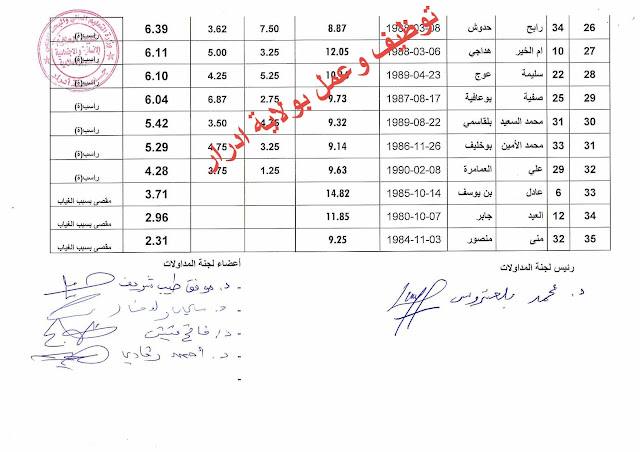 26 34 رابح حدوش 1988-03-08 8.87 7.50 3.62 6.39 راسب(ة)
27 10 ام الخير هداجي 1988-03-06 12.05 3.25 5.00 6.11 راسب(ة)
28 22 سليمة عوج 1989-04-23 5.25 4.25 6.10 راسب(ة)
29 25 صفية بوعافية 1987-08-17 9.73 2.75 6.87 6.04 راسب(ة)
30 31 محمد السعيد بلقاسمي 1989-08-22 9.32 3.50 5.42 راسب(ة)
31 33 محمد الأمين بوخليف 1986-11-26 9.14 3.25 4.75 5.29 راسب(ة)
32 29 علي العمامرة 1990-02-08 9.63 1.25 3.75 4.28 راسب(ة)
33 6 عادل بن يوسف 1985-10-14 14.82 3.71 مقصى بسبب الغياب
34 12 العيد جابر 1980-10-07 11.85 2.96 مقصى بسبب الغياب
35 32 منى منصور 1984-11-03 9.25 2.31 مقصى بسبب الغياب
توظيف وعمل بولاية ادرار
رئيس لجنة المداولات
د. محمد
أعضاء لجنة المداولات
- د. موفق طيب شريف
- د.
- د/ فاتح
- د. أحمد
-